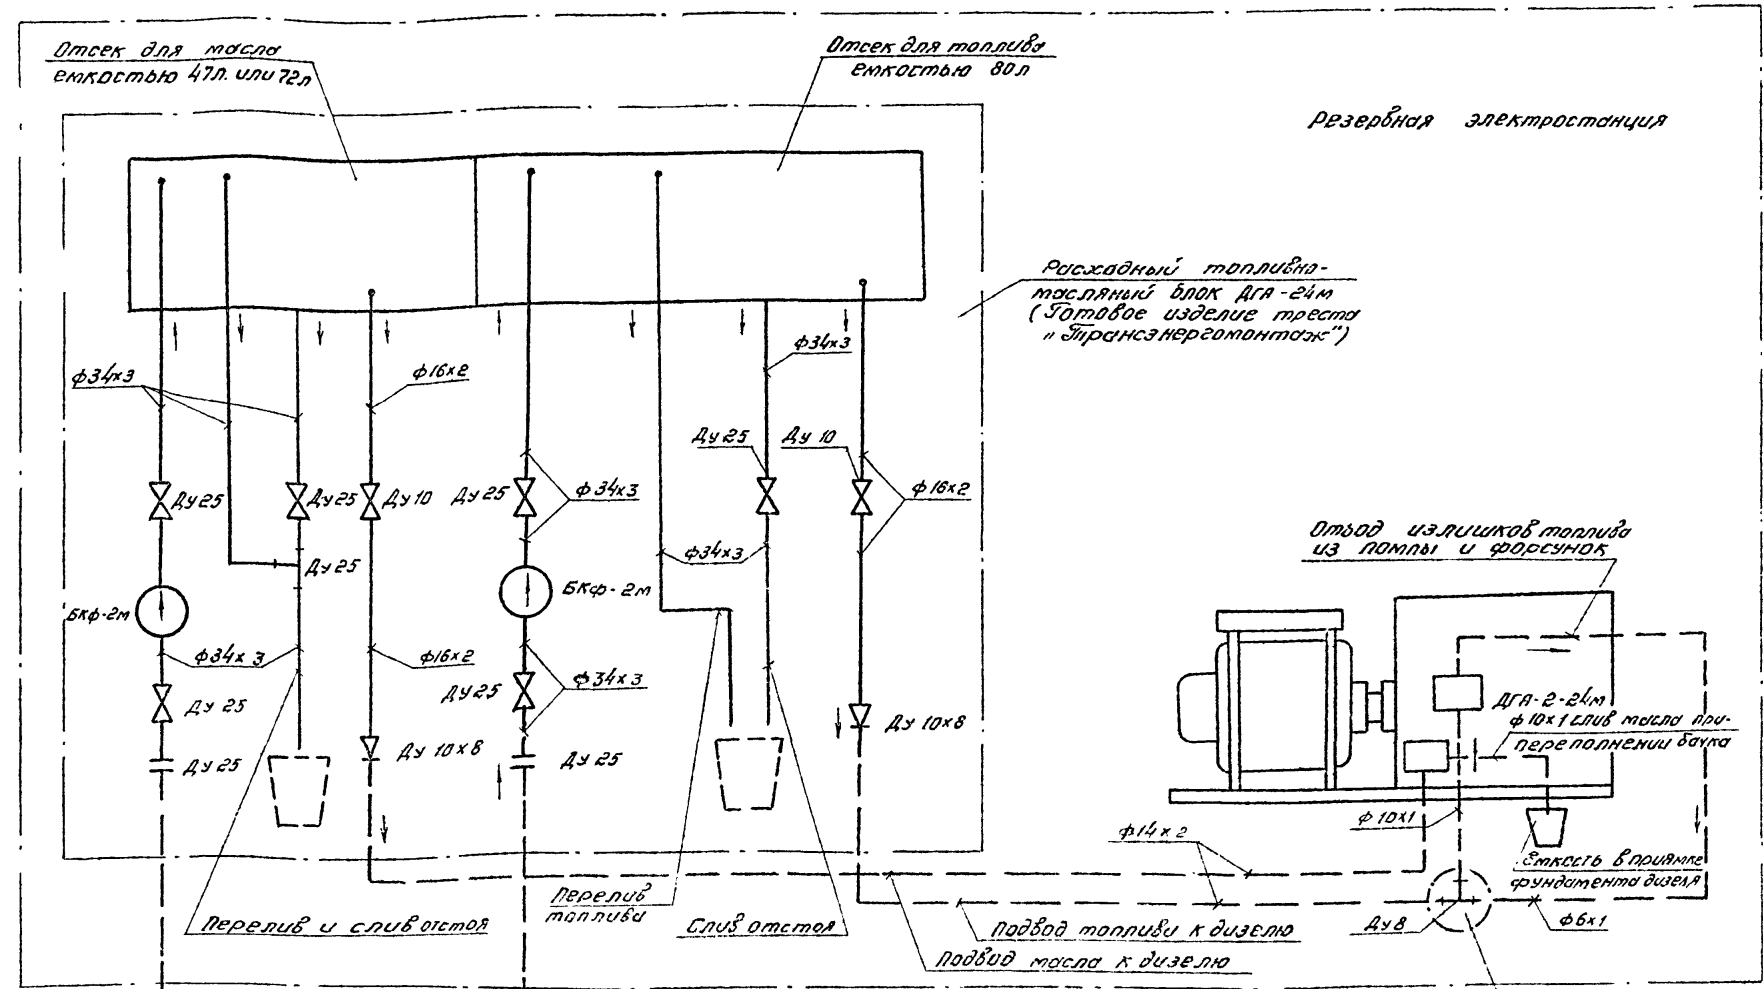 Отсек для масла
емкостью 47л. или 72л
Отсек для топлива
емкостью 80л
Резервная электростанция
Расходный топливно-
масляный блок ДГА-24м
(Готовое изделие треста
„Трансэнергомонтаж")
ф34×3
ф16×2
ф34×3
Ду 25
Ду 10
Ду 25
Ду 25
Ду 10
Ду 25
ф34×3
ф16×2
Ду 25
ф34×3
БКф-2м
БКф-2м
ф34×3
ф16×2
ф34×3
Ду 25
Ду 25
Ду 10×8
Ду 10×8
Ду 25
Ду 25
Отвод излишков топлива
из помпы и форсунок
ДГА-2-24м
ф10×1 слив масла при-
переполнении бачка
ф10×1
ф14×2
Емкость в приямке
фундамента дизеля
Перелив
топлива
Перелив и слив отстоя
Слив отстоя
Подвод топлива к дизелю
Ду 8
ф6×1
Подвод масла к дизелю